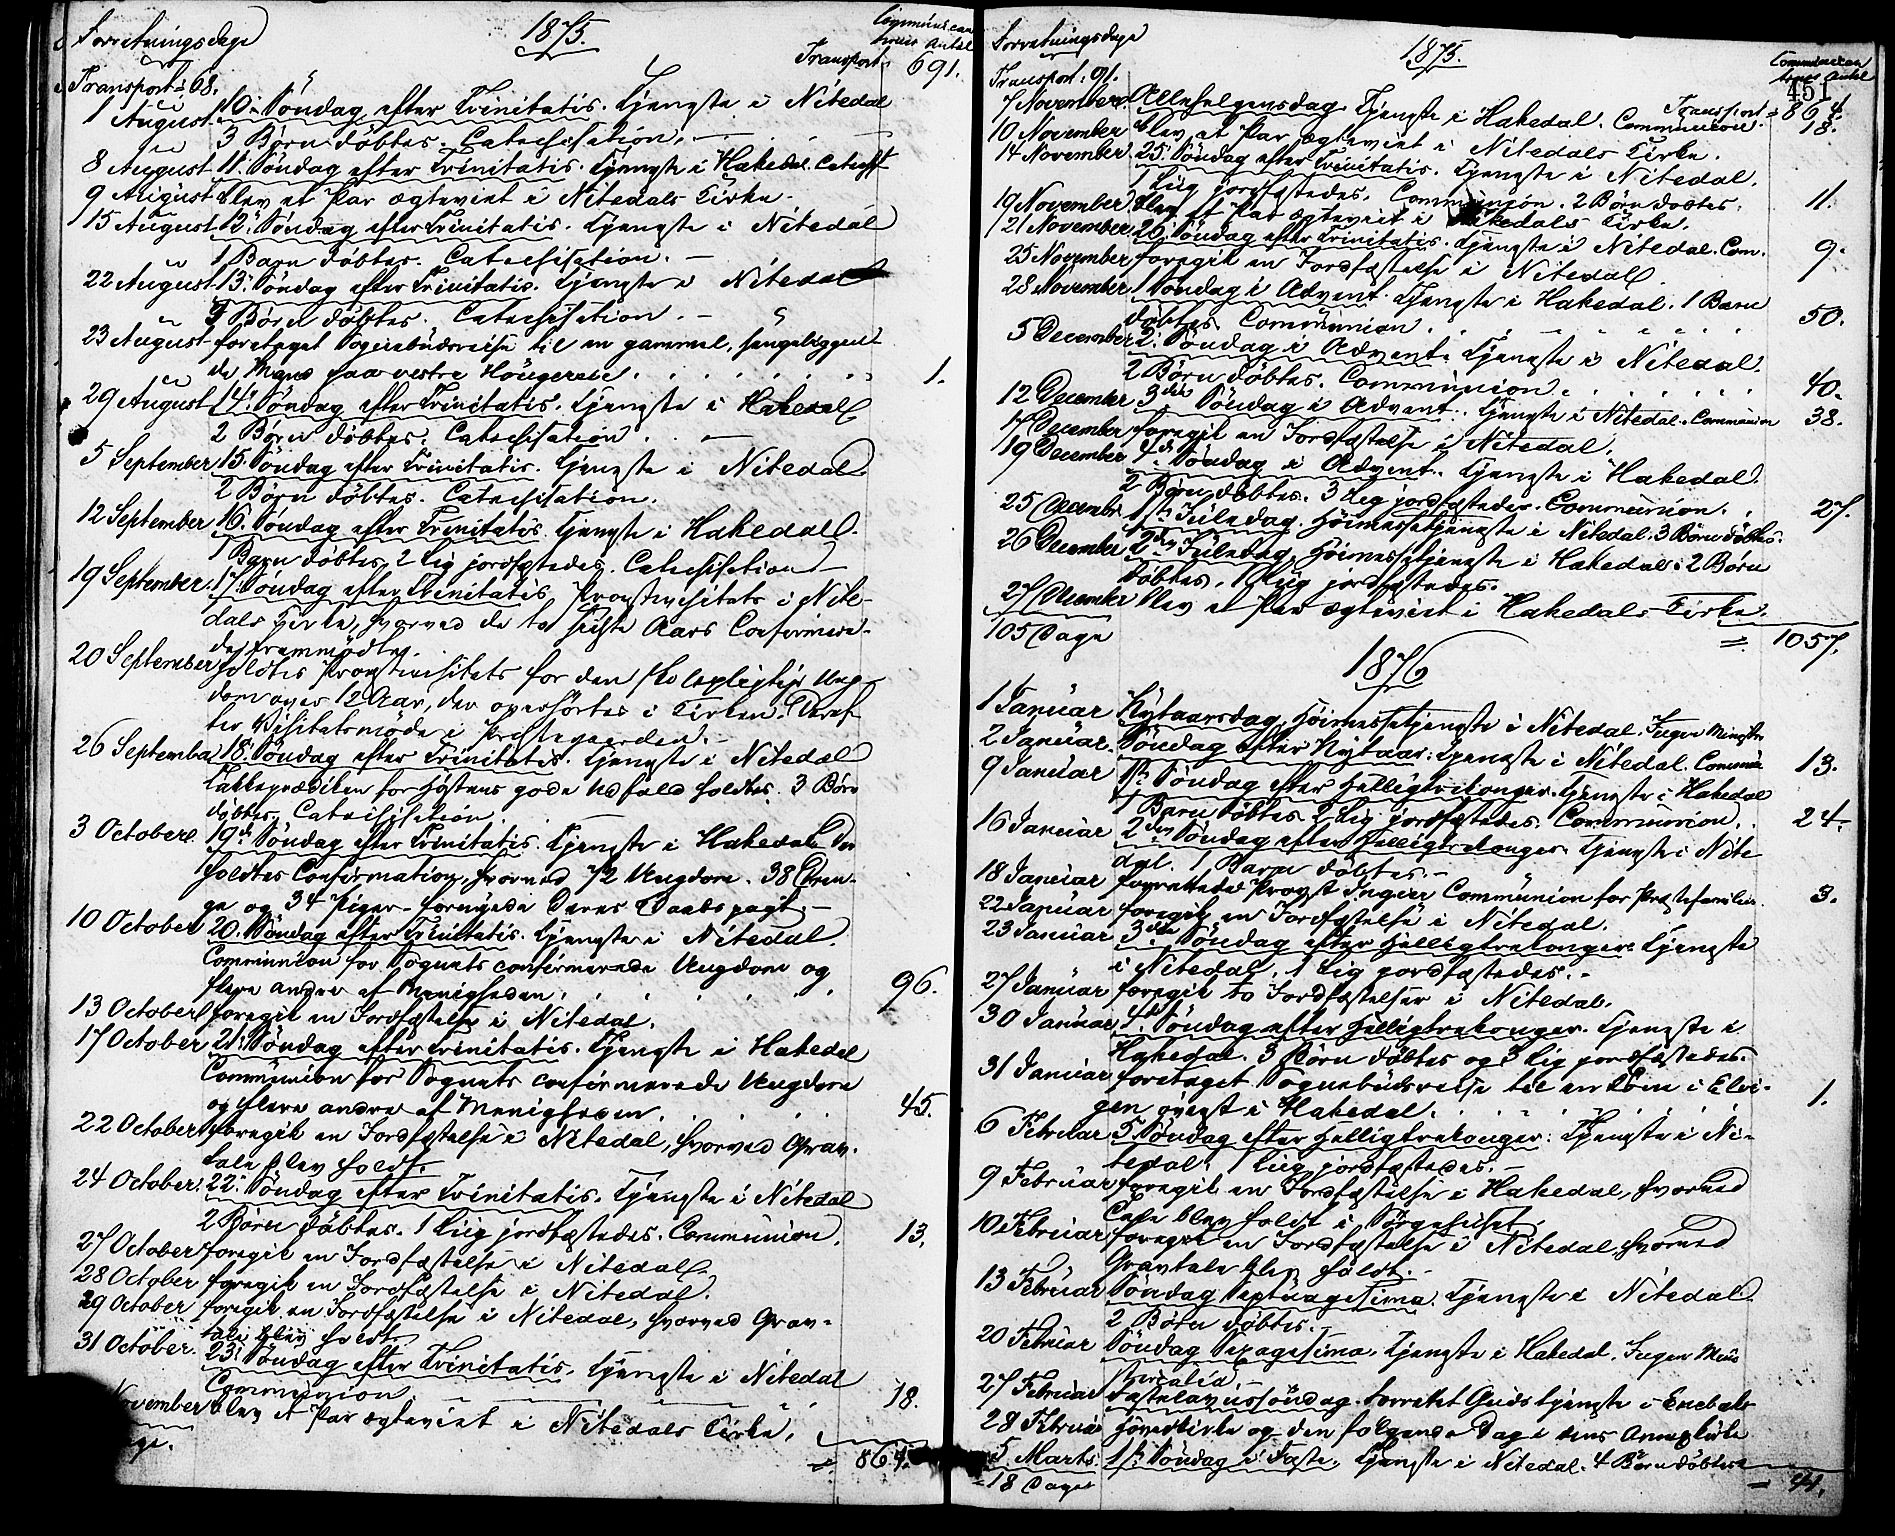 Forretningsdage 1875. Communican-
ternes Antal
Transport: 68. Transport: 691.
1 August 10. Söndag efter Trinitatis. Tjeneste i Nitedal
3 Börn döbtes. Catechisation.
8 August 11. Söndag efter Trinitatis. Tjeneste i Hakedal. Catechis
9 August blev et Par ægteviet i Nitedals Kirke.
15 August 12. Söndag efter Trinitatis. Tjeneste i Nitedal
1 Barn döbtes. Catechisation.
22 August 13. Söndag efter Trinitatis. Tjeneste i Nitedal
3 Börn döbtes. Catechisation.
23 August foretaget Sognebudsreise til en gammel, sengeliggen-
de Mand paa vestre Höugereie. 1.
29 August 14. Söndag efter Trinitatis. Tjeneste i Hakedal
2 Börn döbtes. Catechisation.
5 September 15. Söndag efter Trinitatis. Tjeneste i Nitedal
2 Börn döbtes. Catechisation.
12 September 16. Söndag efter Trinitatis. Tjeneste i Hakedal.
1 Barn döbtes, 2 Lig jordfæstedes. Catechisation
19 September. 17. Söndag efter Trinitatis. Provstevisitats i Nite-
dals Kirke, hvorved de to sidste Aars Confirmere-
de fremmödte.
20 September holdtes Provstevisitats for den skolepligtige Ung-
dom over 12 Aar, der overhörtes i Kirken. Deref-
ter Visitatsmöde i Præstegaarden.
26 September 18. Söndag efter Trinitatis. Tjeneste i Nitedal
Takkeprædiken for Höstens gode Udfald holdtes. 3 Börn
döbtes. Catechisation.
3 October. 19. Söndag efter Trinitatis. Tjeneste i Hakedal. Der
holdtes Confirmation, hvorved 72 Ungdom. 38 Dren-
ge og 34 Piger - fornyede Deres Daabspagt.
10 October 20. Söndag efter Trinitatis. Tjeneste i Nitedal.
Communion for Sognets confirmerede Ungdom og
flere andre af Menigheden. 96.
13 October foregik en Jordfæstelse i Nitedal.
17 October 21. Söndag efter Trinitatis. Tjeneste i Hakedal
Communion for Sognets confirmerede Ungdom
og flere andre af Menigheden. 45.
22 October foregik en Jordfæstelse i Nitedal, hvorved Grav-
tale blev holdt.
24 October. 22. Söndag efter Trinitatis. Tjeneste i Nitedal
2 Börn döbtes. 1 Liig jordfæstedes. Communion. 13.
27 October foregik en Jordfæstelse i Nitedal.
28 October foregik en Jordfæstelse i Nitedal.
29 October foregik en Jordfæstelse i Nitedal, hvorved Grav-
tale blev holdt.
31 October. 23. Söndag efter Trinitatis. Tjeneste i Nitedal
Communion. 18.
November blev et Par ægteviet i Nitedals Kirke.
= 864.
Forretningsdage 1875. Communican-
ternes Antal
451
Transport: 91. Transport = 864.
7 November. Allehelgensdag. Tjeneste i Hakedal. Communion. 18.
10 November blev et Par ægteviet i Nitedals Kirke.
14 November 25. Söndag efter Trinitatis. Tjeneste i Nitedal.
1 Liig jordfæstedes. Communion. 2 Börn döbtes. 11.
19 November blev et Par ægteviet i Nitedals Kirke.
21 November 26. Söndag efter Trinitatis. Tjeneste i Nitedal. Com. 9.
25 November foregik en Jordfæstelse i Nitedal.
28 November 1 Söndag i Advent. Tjeneste i Hakedal. 1 Barn
döbtes. Communion. 50.
5 December 2. Söndag i Advent. Tjeneste i Nitedal.
2 Börn döbtes. Communion. 40.
12 December 3die Söndag i Advent. Tjeneste i Nitedal. Communion 38.
17 December foregik en Jordfæstelse i Nitedal.
19 December 4de Söndag i Advent. Tjeneste i Hakedal.
2 Börn döbtes. 3 Lig jordfæstedes. Communion. 27.
25 December 1ste Juledag. Höimessetjeneste i Nitedal. 3 Börn döbtes.
26 December 2den Juledag. Höimessetjeneste i Hakedal: 2 Börn
döbtes. 1 Liig jordfæstedes.
27 December blev et Par ægteviet i Hakedals Kirke.
105 Dage = 1057.
1876
1 Januar Nytaarsdag. Höimessetjeneste i Nitedal. Ingen
2 Januar. Söndag efter Nytaar. Tjeneste i Nitedal. Commun 13.
9 Januar 1ste Söndag efter Helligtrekonger. Tjeneste i Hakedal
1 Barn döbtes. 2 Lig jordfæstedes. Communion. 24.
16 Januar 2den Söndag efter Helligtrekonger. Tjeneste i Nite-
dal. 1 Barn döbtes.
18 Januar forrettede Provst Communion for Præstefamilien. 3.
22 Januar foregik en Jordfæstelse i Nitedal.
23 Januar 3die Söndag efter Helligtrekonger. Tjeneste
i Nitedal. 1 Lig jordfæstedes.
27 Januar foregik to Jordfæstelser i Nitedal.
30 Januar 4de Söndag efter Helligtrekonger. Tjeneste i
Hakedal. 3 Börn döbtes og 3 Lig jordfæstedes.
31 Januar foretaget Sognebudsreise til en Kone i Elvi-
gen övrest i Hakedal. 1.
6 Februar 5 Söndag efter Helligtrekonger. Tjeneste i Ni-
tedal. 1 Liig jordfæstedes.
9 Februar foregik en Jordfæstelse i Hakedal, hvorved
Tale blev holdt i Sörgehuset.
10 Februar foregik en Jordfæstelse i Nitedal, hvorved
Gravtale blev holdt.
13 Februar Söndag Septuagesima. Tjeneste i Nitedal.
2 Börn döbtes.
20 Februar Söndag Sexagesima. Tjeneste i Hakedal. Ingen Minis
terialia.
27 Februar Fastelavnssöndag. Forrettet Gudstjeneste i Enebaks
28 Februar Hovedkirke og den fölgende Dag i dens Annexkirke
5 Marts. 1ste Söndag i Faste. Tjeneste i Nitedal. 4 Börn döbtes
18 Dage = 41.